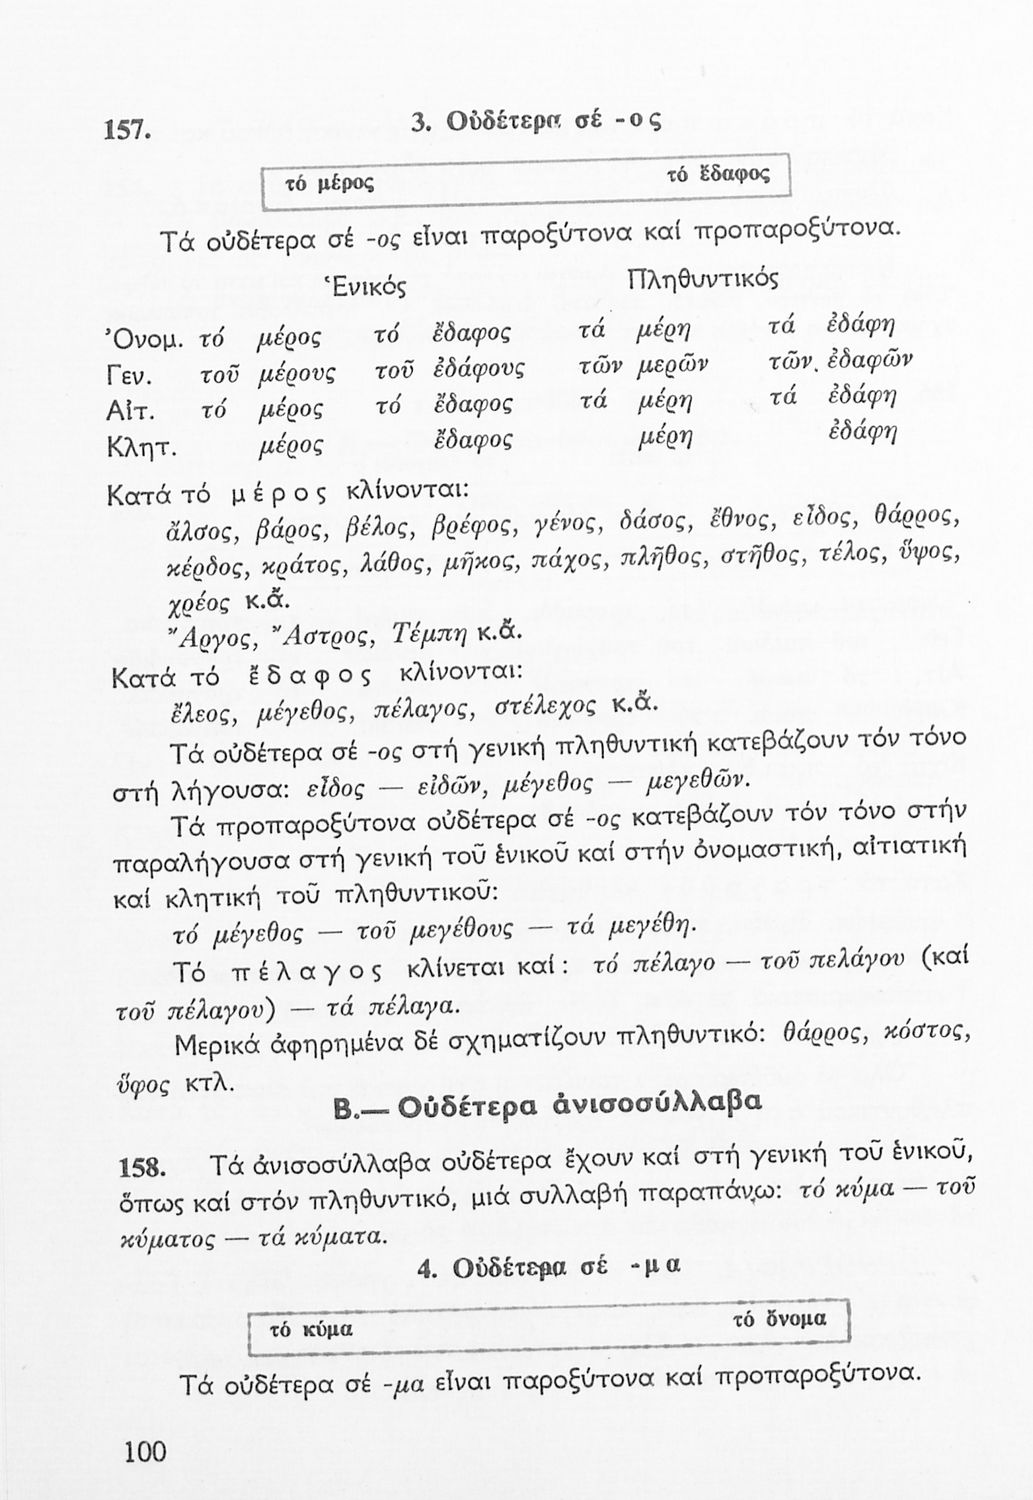 157. 3. Οὐδέτερα σέ -ο ς
τό μέρος τό ἔδαφος
Τά οὐδέτερα σέ -ος εἶναι παροξύτονα καί προπαροξύτονα.
Ἑνικός Πληθυντικός
Ὀνομ. τό μέρος τό ἔδαφος τά μέρη τά ἐδάφη
Γεν. τοῦ μέρους τοῦ ἐδάφους τῶν μερῶν τῶν ἐδαφῶν
Αἰτ. τό μέρος τό ἔδαφος τά μέρη τά ἐδάφη
Κλητ. μέρος ἔδαφος μέρη ἐδάφη
Κατά τό μ έ ρ ο ς κλίνονται:
ἄλσος, βάρος, βέλος, βρέφος, γένος, δάσος, ἔθνος, εἶδος, θάρρος,
κέρδος, κράτος, λάθος, μῆκος, πάχος, πλῆθος, στῆθος, τέλος, ὕψος,
χρέος κ.ἄ.
Ἄργος, Ἄστρος, Τέμπη κ.ἄ.
Κατά τό ἔ δ α φ ο ς κλίνονται:
ἔλεος, μέγεθος, πέλαγος, στέλεχος κ.ἄ.
Τά οὐδέτερα σέ -ος στή γενική πληθυντική κατεβάζουν τόν τόνο
στή λήγουσα: εἶδος — εἰδῶν, μέγεθος — μεγεθῶν.
Τά προπαροξύτονα οὐδέτερα σέ -ος κατεβάζουν τόν τόνο στήν
παραλήγουσα στή γενική τοῦ ἑνικοῦ καί στήν ὀνομαστική, αἰτιατική
καί κλητική τοῦ πληθυντικοῦ:
τό μέγεθος — τοῦ μεγέθους — τά μεγέθη.
Τό π έ λ α γ ο ς κλίνεται καί: τό πέλαγο — τοῦ πελάγου (καί
τοῦ πέλαγου) — τά πέλαγα.
Μερικά ἀφηρημένα δέ σχηματίζουν πληθυντικό: θάρρος, κόστος,
ὕφος κτλ.
Β.— Οὐδέτερα ἀνισοσύλλαβα
158. Τά ἀνισοσύλλαβα οὐδέτερα ἔχουν καί στή γενική τοῦ ἑνικοῦ,
ὅπως καί στόν πληθυντικό, μιά συλλαβή παραπάνω: τό κύμα — τοῦ
κύματος — τά κύματα.
4. Οὐδέτερα σέ -μ α
τό κύμα τό ὄνομα
Τά οὐδέτερα σέ -μα εἶναι παροξύτονα καί προπαροξύτονα.
100